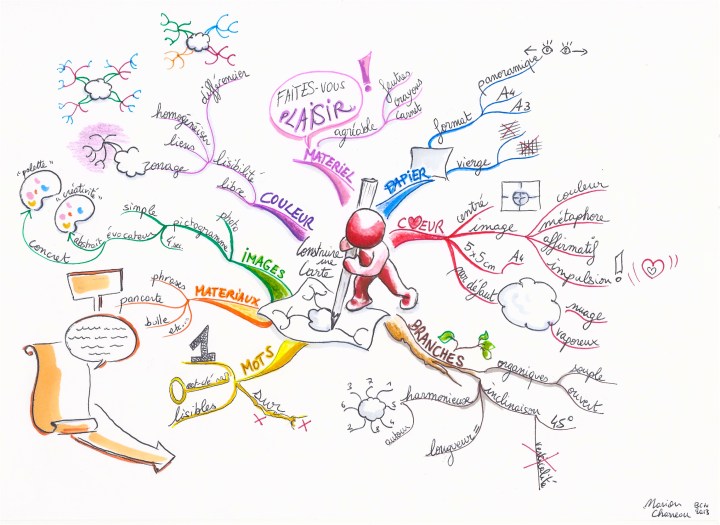 Construire
une
Carte
FAITES-VOUS
PLAISIR
!
MATERIEL
agréable
feutres
crayons
carnet
PAPIER
format
panoramique
A4
A3
vierge
CŒUR
centré
image
couleur
métaphore
affirmatif
impulsion!
5x5cm
A4
par défaut
nuage
vaporeux
BRANCHES
organiques
souple
ouvert
inclinaison
45°
verticalité
longueur =
harmonieuse
autour
1
2
3
5
6
MOTS
1
mot-clé
lisibles
sur
MATERIAUX
phrases
pancarte
bulle
etc...
IMAGES
photo
pictogramme
simple
évocateur
abstrait
concret
"palette"
"créativité"
COULEUR
lisibilité
libre
différencier
homogénéiser
liens
zonage
Marion
Charreau
2013